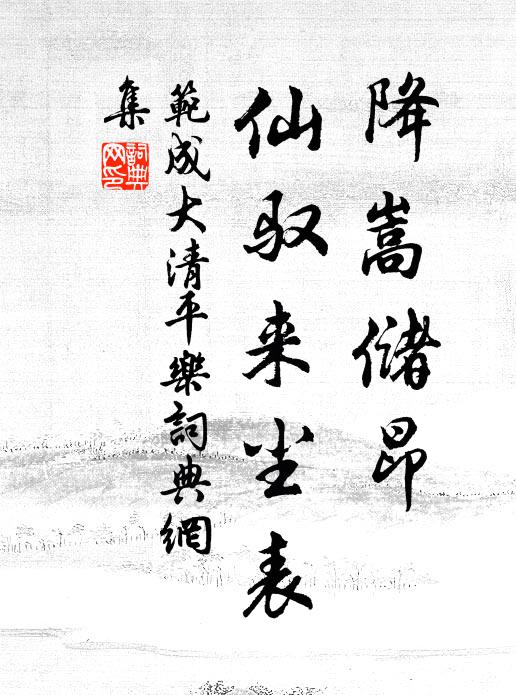 降嵩储昂
仙驭来尘表
範成大清平樂詞典網
集
詞典
网印